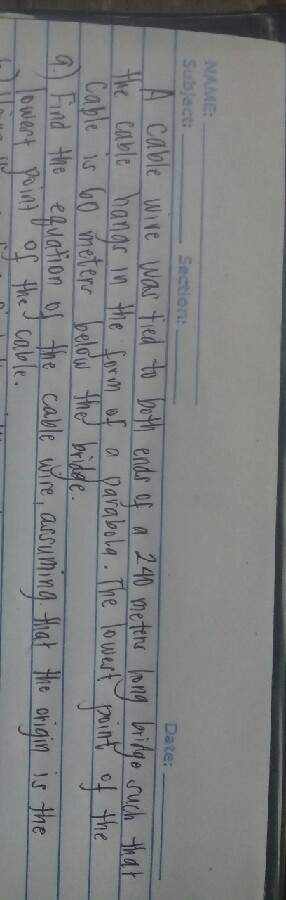 NAME:
Subject: Section: Date:
A cable wire was tied to both ends of a 240 meters long bridge such that
the cable hangs in the form of a parabola. The lowest point of the
cable is 60 meters below the bridge.
a.) Find the equation of the cable wire, assuming that the origin is the
lowest point of the cable.